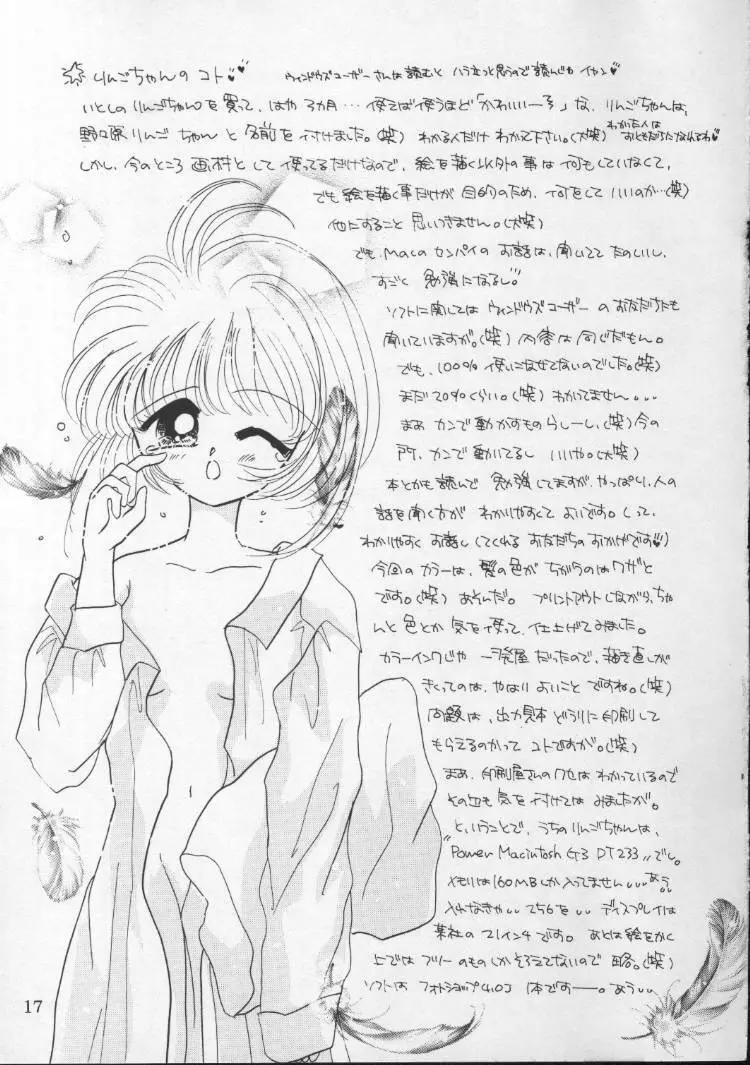 りんごちゃんのコト
ウィンドウズユーザーさんは読むとハラ立つと思うので読んじゃイヤン
いとしのりんごちゃんを買って、はや3カ月…使えば使うほど「かわいいーろ」な、りんごちゃんは、
野々原りんごちゃんと名前を付けました。(笑) わかる人だけわかて下さい。(大笑) わかった人はおともだちになれてね
しかし、今のところ画材として使ってるだけなので、絵を描く以外の事は何もしていなくて、
でも絵を描く事だけが目的のため、何をしていいのか…(笑)
他にすること思いつきません。(大笑)
でも、Macのセンパイのお話は、聞いててたのしいし、
すごく勉強になるし。
ソフトに関してはウィンドウズユーザーのお友だちたちにも
聞いていますが。(笑) 内容は同じだもん。
でも、100%使いこなせてないのでした。(笑)
まだ20%くらい。(笑) わかてません…
まあカンで動かすものらしーし、(笑)今の
所、カンで動いてるしいいや。(大笑)
本とかも読んで勉強してますが、やっぱり、人の
話を聞く方がわかりやすくてよいです。(って、
わかりやすくお話ししてくれるお友だちのおかげです)
今回のカラーは、髪の色がちがうのはワザと
です。(笑) あそんだ。プリントアウトしながら、ちゃ
んと色とか気を使って、仕上げてみました。
カラーインクじゃ一発屋だったので、描き直しが
きくってのは、やはりよいことですね。(笑)
問題は、出力見本どうりに印刷して
もらえるのかってコトですが。(笑)
まあ、印刷屋さんのクセはわかっているので
その辺も気を付けてはみましたが。
と、いうことで、うちのりんごちゃんは、
"Power Macintosh G3 DT233"でし。
メモリは160MBしか入ってません…あう。
入れなきゃ…256を…ディスプレイは
某社の21インチです。あとは絵をかく
上ではフツーのものしかそろえてないので略。(笑)
ソフトはフォトショップ4.0J 1本ですーー。あう…
17